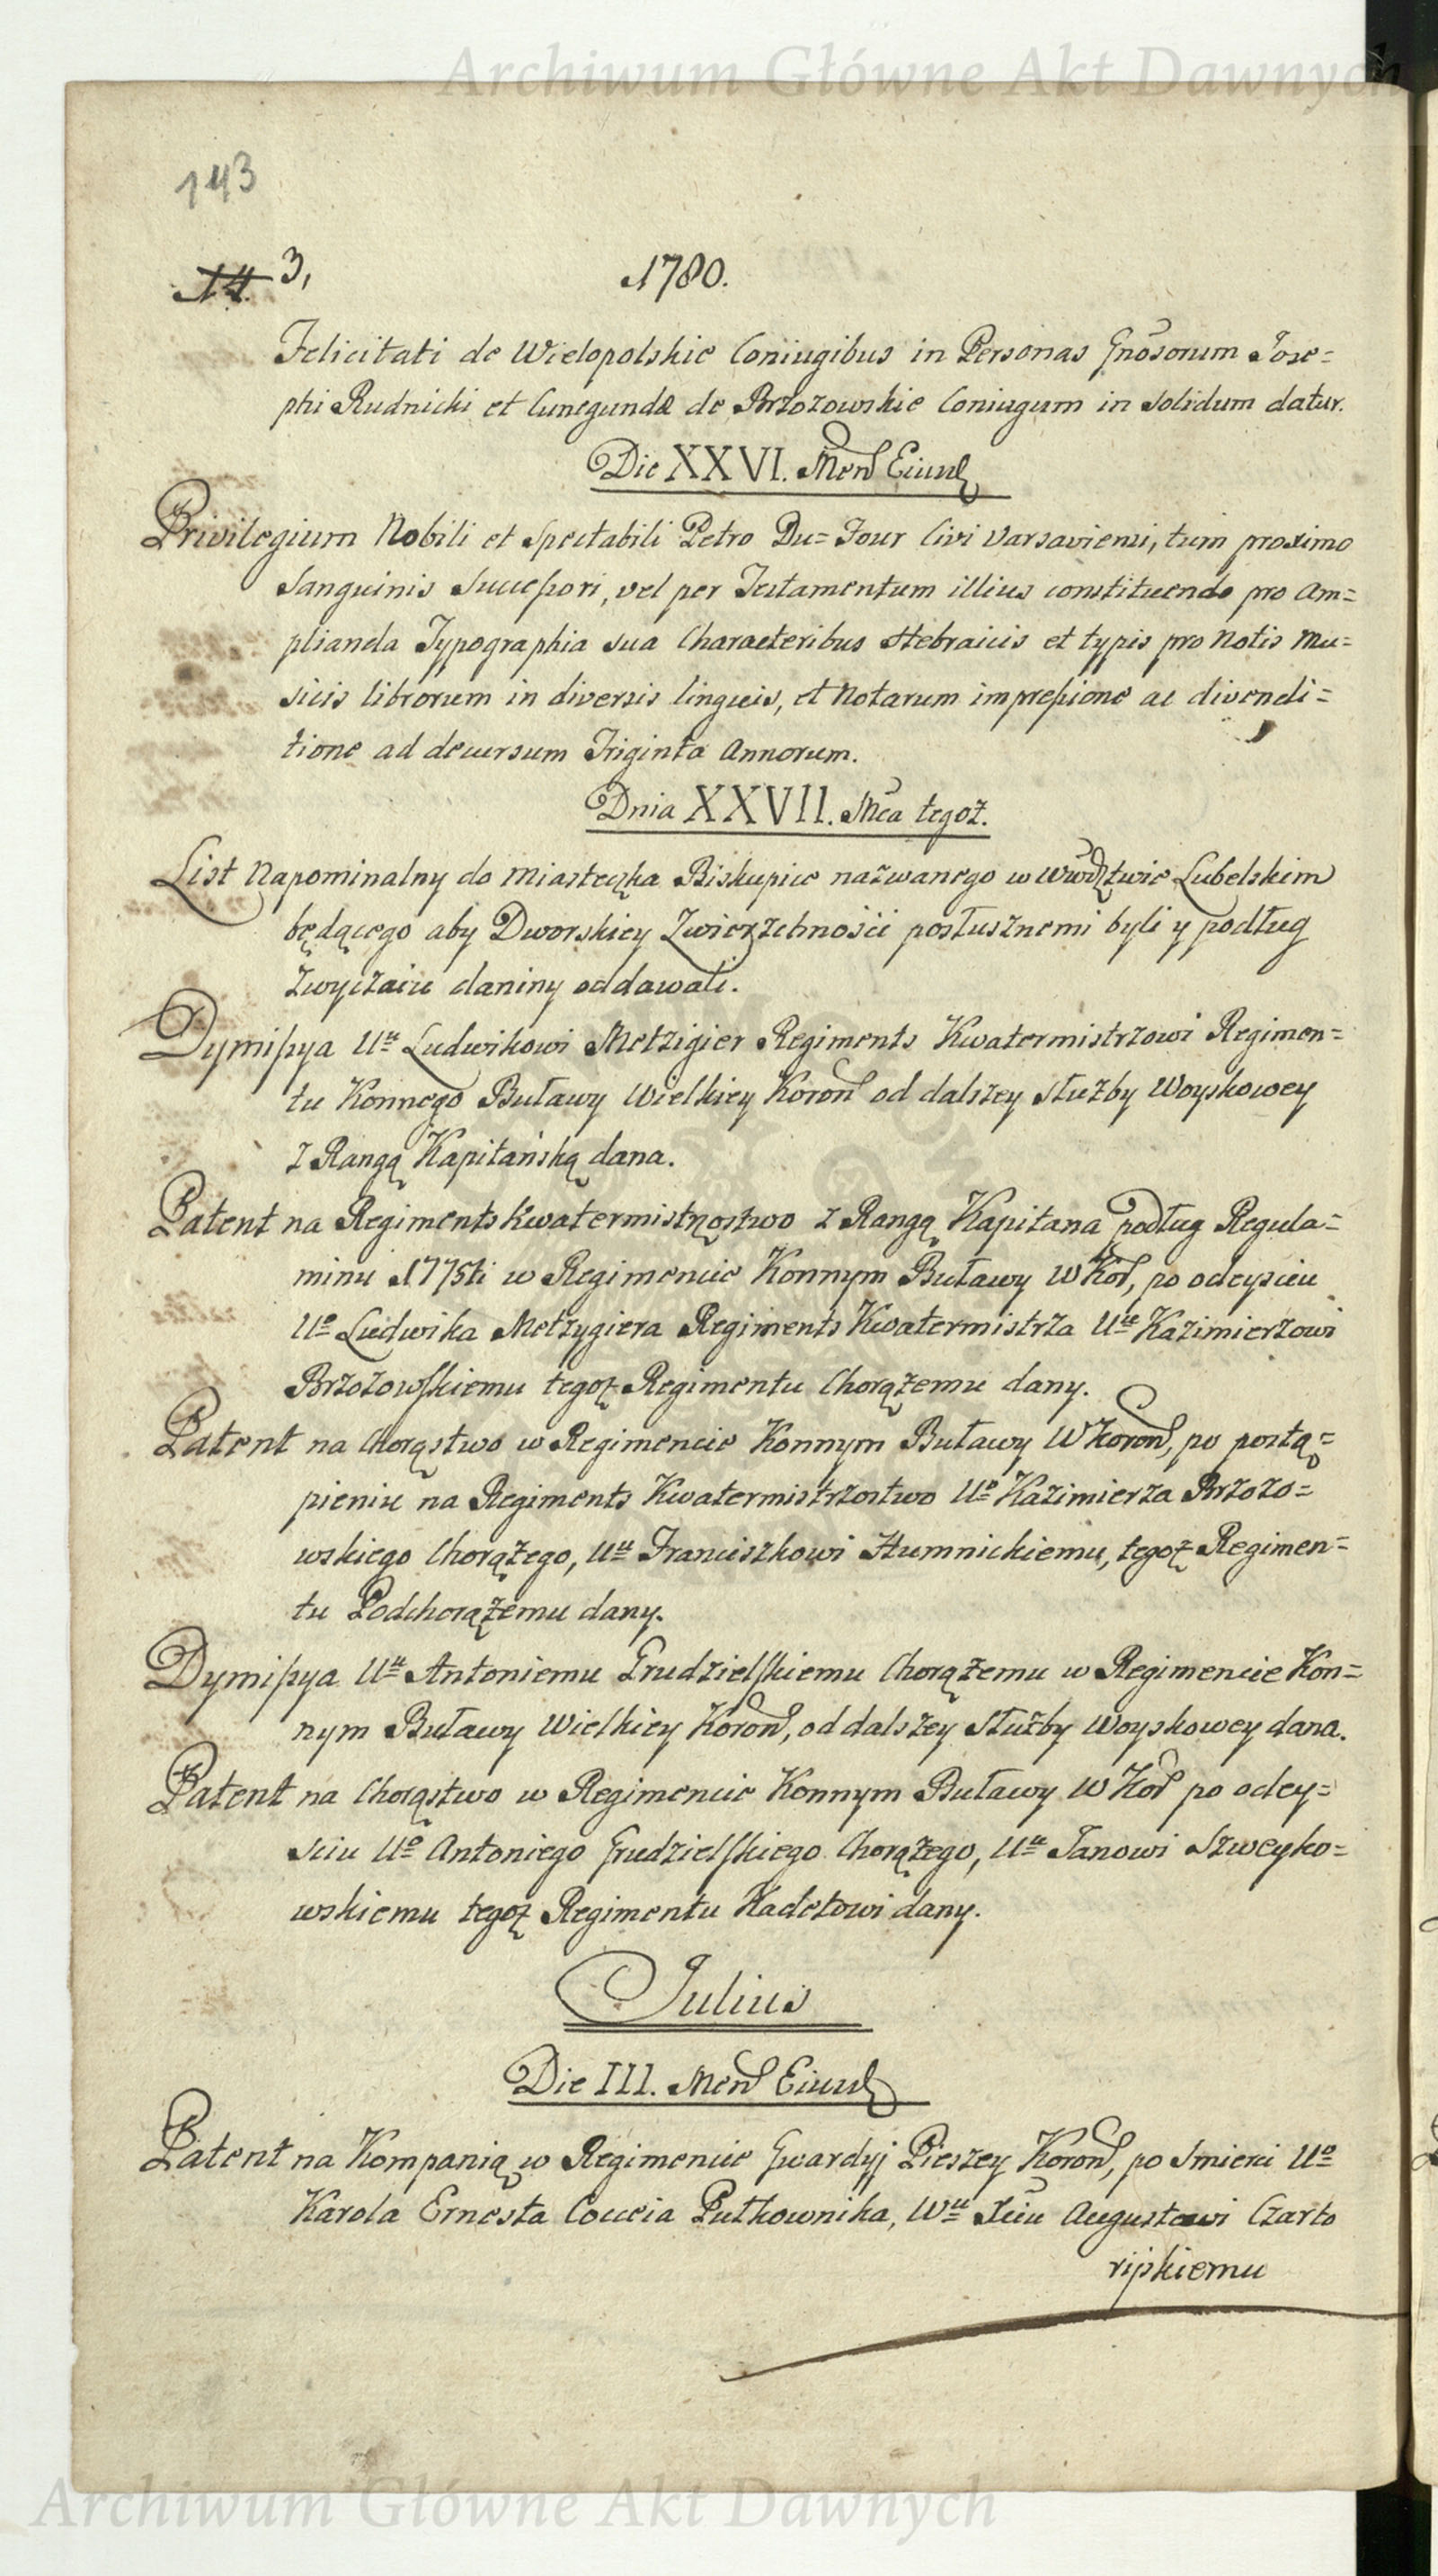 Archiwum Główne Akt Dawnych
143
14. 3,
1780.
Felicitati de Wielopolskie Coniugibus in Personas Gnosorum Jose=
phi Rudnicki et Cunegundæ de Brzozowskie Coniugum in solidum datur.
Die XXVI. Men Eiusd
Privilegium Nobili et Spectabili Petro Du=Four Civi Varsaviensi, tum proximo
Sanguinis Successori, vel per Testamentum illius constituendo pro am=
plianda Typographia sua Characteribus Hebraicis et typis pro Notis Mu=
sicis librorum in diversis linguis, et Notarum impressione ac divendi=
tione ad decursum Triginta Annorum.
Dnia XXVII. Mca tegoż.
List Napominalny do Miasteczka Biskupice nazwanego w Wwdztwie Lubelskim
będącego aby Dworskiey Zwierzchności posłusznemi byli y podług
zwyczaiu daniny oddawali.
Dymissya Uu Ludwikowi Metzigier Regiments Kwatermistrzowi Regimen=
tu Konnego Buławy Wielkiey Koron od dalszey służby Woyskowey
z Rangą Kapitańską dana.
Patent na Regiments Kwatermistrzostwo z Rangą Kapitana podług Regula=
minu 1775ti w Regimencie Konnym Buławy W Kor, po odeysciu
Uo Ludwika Metzygiera Regiments Kwatermistrza Uu Kazimierzowi
Brzozowskiemu tegoż Regimentu Chorążemu dany.
Patent na Chorąstwo w Regimencie Konnym Buławy W Koron, po postą=
pieniu na Regiments Kwatermistrzostwo Uo Kazimierza Brzozo=
wskiego Chorążego, Uu Franciszkowi Humnickiemu, tegoż Regimen=
tu Podchorążemu dany.
Dymissya Uu Antoniemu Grudzielskiemu Chorążemu w Regimencie Kon=
nym Buławy Wielkiey Koron, od dalszey służby Woyskowey dana.
Patent na Chorąstwo w Regimencie Konnym Buławy W Kor po odey=
sciu Uo Antoniego Grudzielskiego Chorążego, Uu Janowi Szweyko=
wskiemu tegoż Regimentu Kadetowi dany.
Julius
Die III. Men Eiusd
Patent na Kompanią w Regimencie Gwardyj Pieszey Koron, po Smierci Uo
Karola Ernesta Cocceia Pułkownika, Wu Xciu Augustowi Czarto
ryskiemu
Archiwum Główne Akt Dawnych